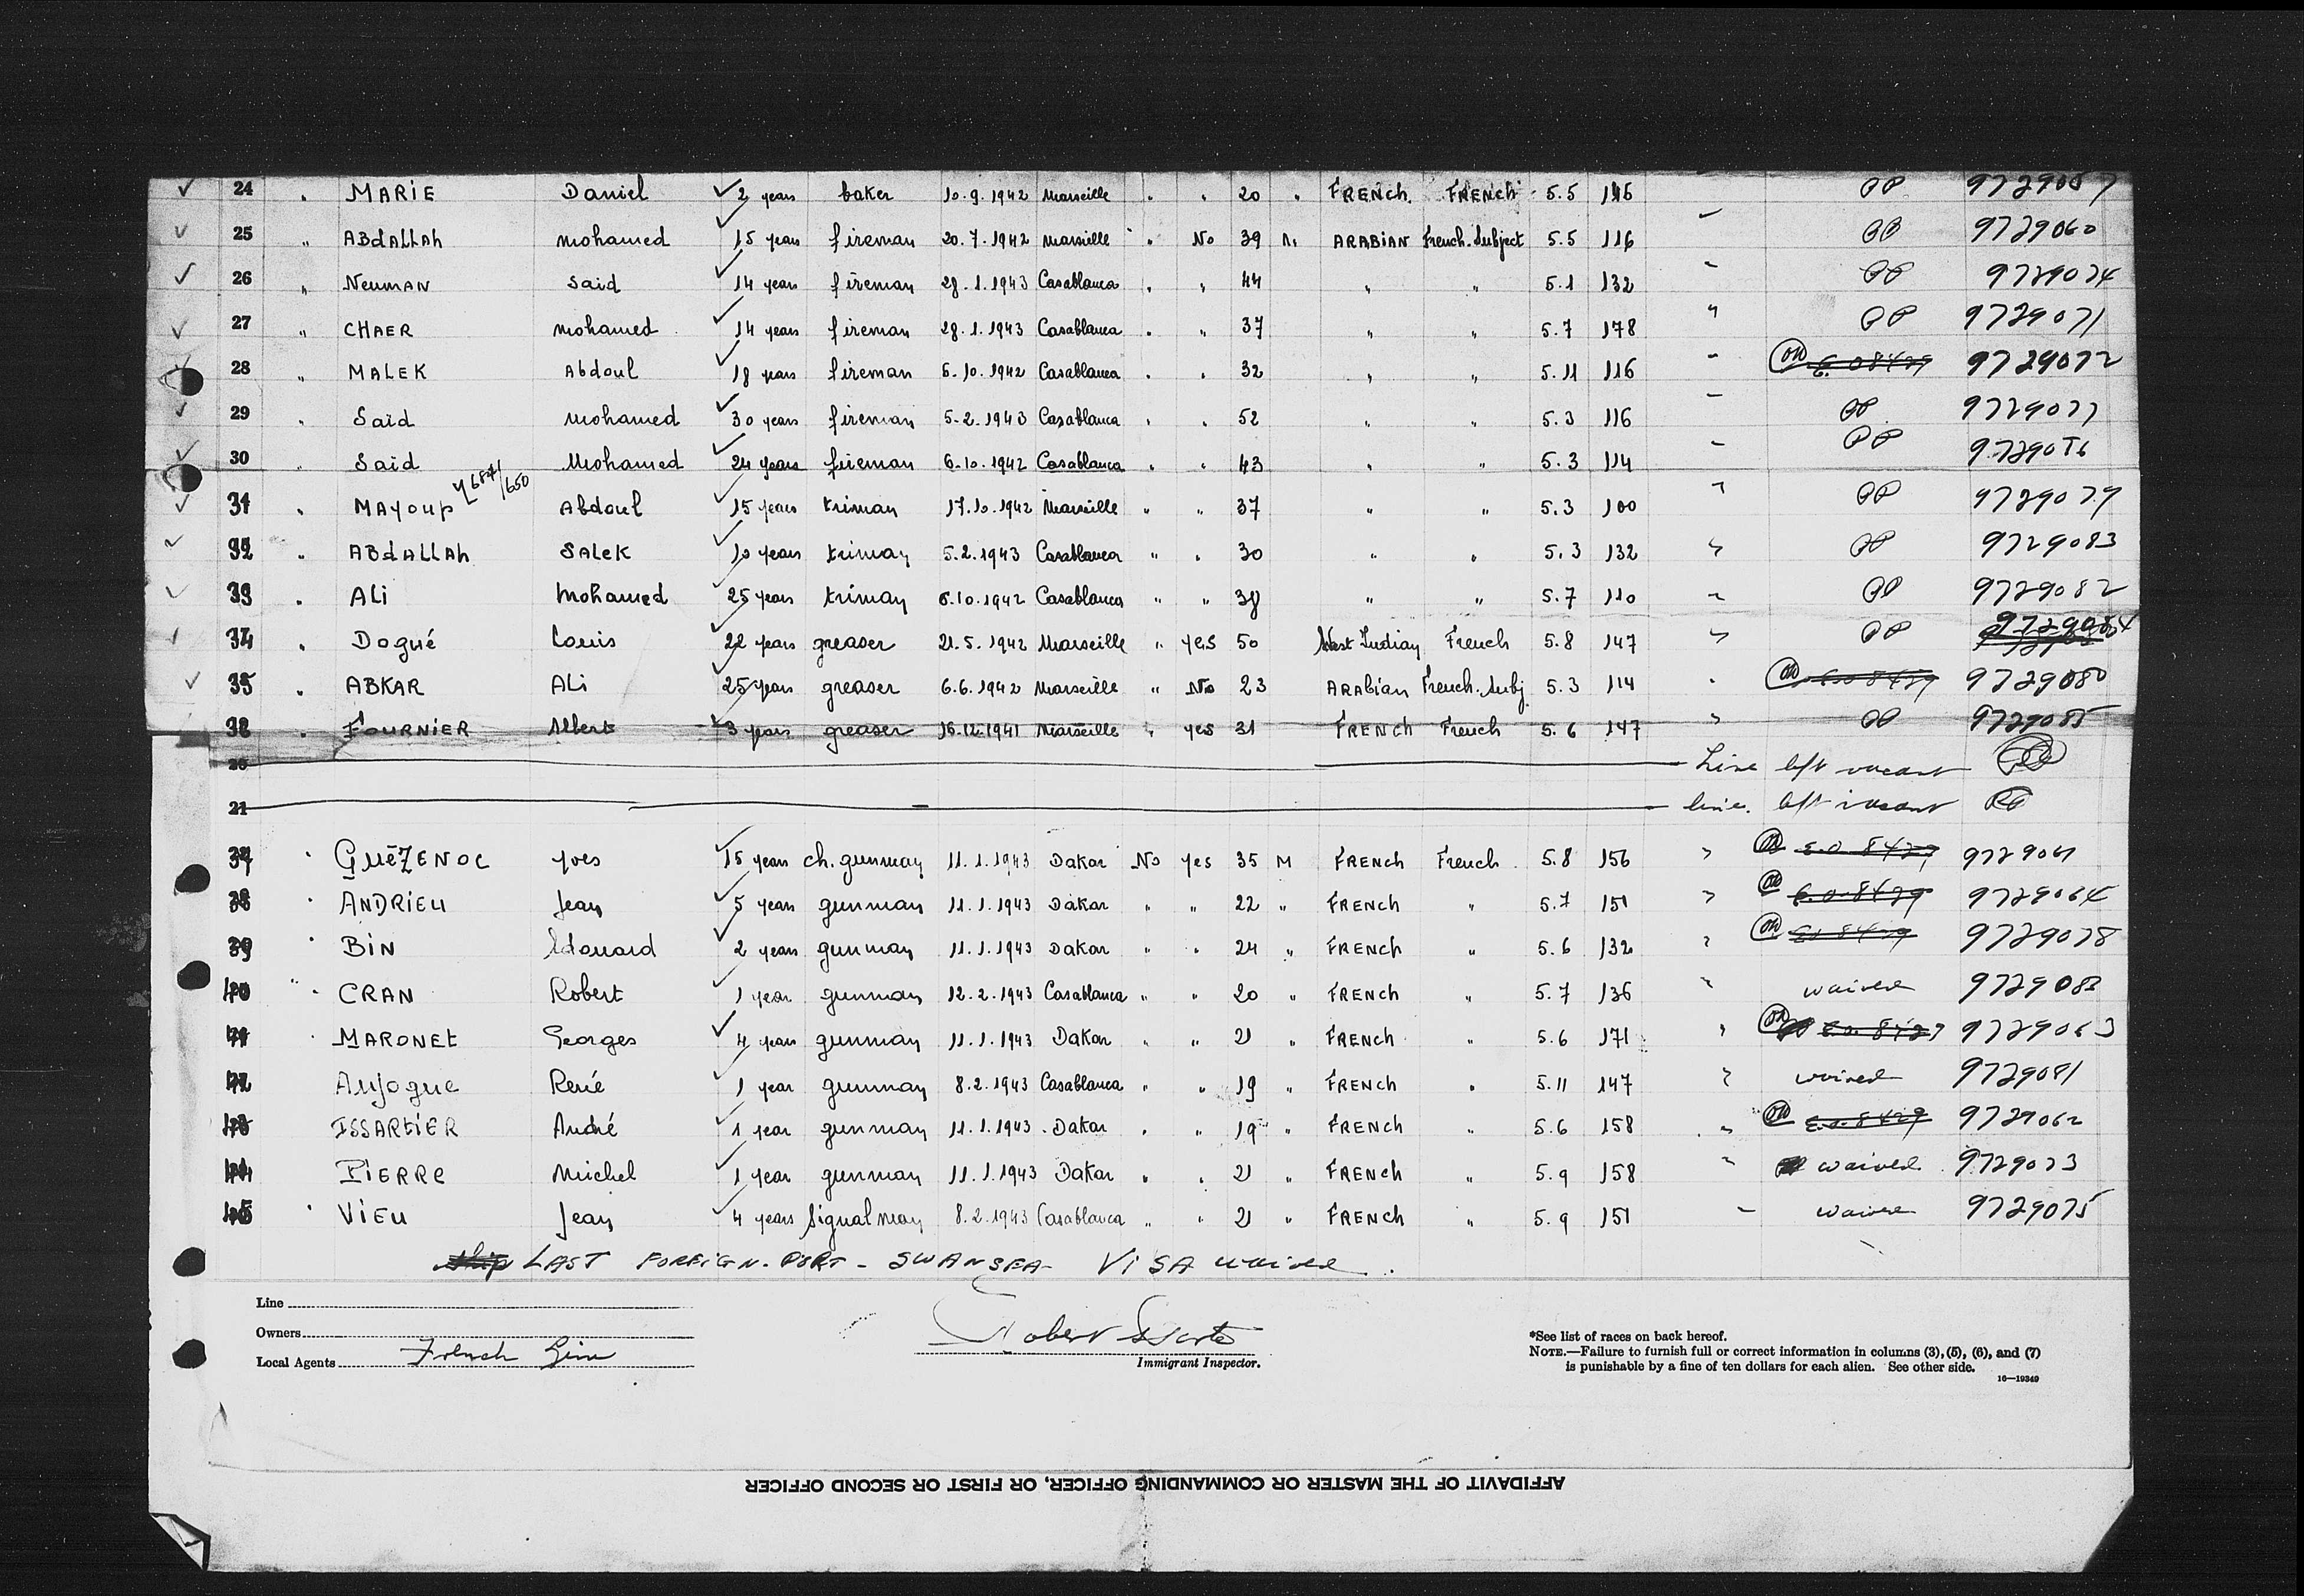 24 " MARIE Daniel 2 years baker 10.9.1942 Marseille " " 20 " FRENCH. FRENCH 5.5 PP
25 " ABdALLAh Mohamed 15 years fireman 20.7.1942 Marseille " No 39 ARABIAN French.Subject 5.5 116 PP 9729060
26 " NeumAN Saïd 14 years fireman 28.1.1943 Casablanca " " 44 " " 5.1 132 PP 9729074
27 " CHAER Mohamed 14 years fireman 28.1.1943 Casablanca " " 37 " " 5.7 178 " PP 9729071
28 " MALEK Abdoul 18 years fireman 6.10.1942 Casablanca " " 32 " " 5.11 116 " 9729072
29 " Saïd Mohamed 30 years fireman 5.2.1943 Casablanca " " 52 " " 5.3 116 " PP 9729077
30 " Saïd Mohamed 24 years fireman 6.10.1942 Casablanca " " 43 " " 5.3 114 " PP 9729076
31 " MAyoup Abdoul 15 years triman 17.10.1942 Marseille " " 37 " " 5.3 100 " PP 9729079
32 " ABdALLAh SALEK 10 years triman 5.2.1943 Casablanca " " 30 " " 5.3 132 " PP 9729083
33 " ALi Mohamed 25 years triman 6.10.1942 Casablanca " " 38 " " 5.7 110 " PP 9729082
34 " Dogué Louis 22 years greaser 21.5.1942 Marseille " yes 50 West Indian French 5.8 147 " PP
35 " ABKAR ALi 25 years greaser 6.6.1942 Marseille " No 23 ARAbian French.Subj 5.3 114 " 9729080
" FOURNIER Albert 3 years greaser 16.12.1941 Marseille " yes 31 FRENCH French 5.6 147 " PP 9729085
20 Line left vacant
21 line. left vacant
37 " GuéZENOC Yves 15 years ch. gunman 11.1.1943 Dakar No yes 35 M FRENCH French 5.8 156 " E.O. 8429 9729061
38 " ANDRIEU Jean 5 years gunman 11.1.1943 Dakar " " 22 " FRENCH " 5.7 151 " E.O. 8429 9729064
39 " BiN Edouard 2 years gunman 11.1.1943 Dakar " " 24 " FRENCH " 5.6 132 " E.O 8429 9729078
40 " CRAN Robert 1 year gunman 12.2.1943 Casablanca " " 20 " FRENCH " 5.7 136 " waived
41 " MARONEt Georges 4 years gunman 11.1.1943 Dakar " " 21 " FRENCH " 5.6 171 " E.O. 8429 9729063
42 Aujogue René 1 year gunman 8.2.1943 Casablanca " " 19 " FRENCH " 5.11 147 " waived 9729081
43 ISSARtiER André 1 year gunman 11.1.1943 Dakar " " 19 " FRENCH " 5.6 158 " E.O. 8429 9729062
44 PiERRE Michel 1 year gunman 11.1.1943 Dakar " " 21 " FRENCH " 5.9 158 " waived 9729073
45 " ViEu Jean 4 years Signalman 8.2.1943 Casablanca " " 21 " FRENCH " 5.9 151 " waived 9729075
ship LAST FOREIGN. PORT - SWANSEA - ViSA waived.
Line
Owners
Local Agents French Line
Immigrant Inspector.
*See list of races on back hereof.
NOTE.—Failure to furnish full or correct information in columns (3), (5), (6), and (7)
is punishable by a fine of ten dollars for each alien. See other side.
16—19349
AFFIDAVIT OF THE MASTER OR COMMANDING OFFICER, OR FIRST OR SECOND OFFICER